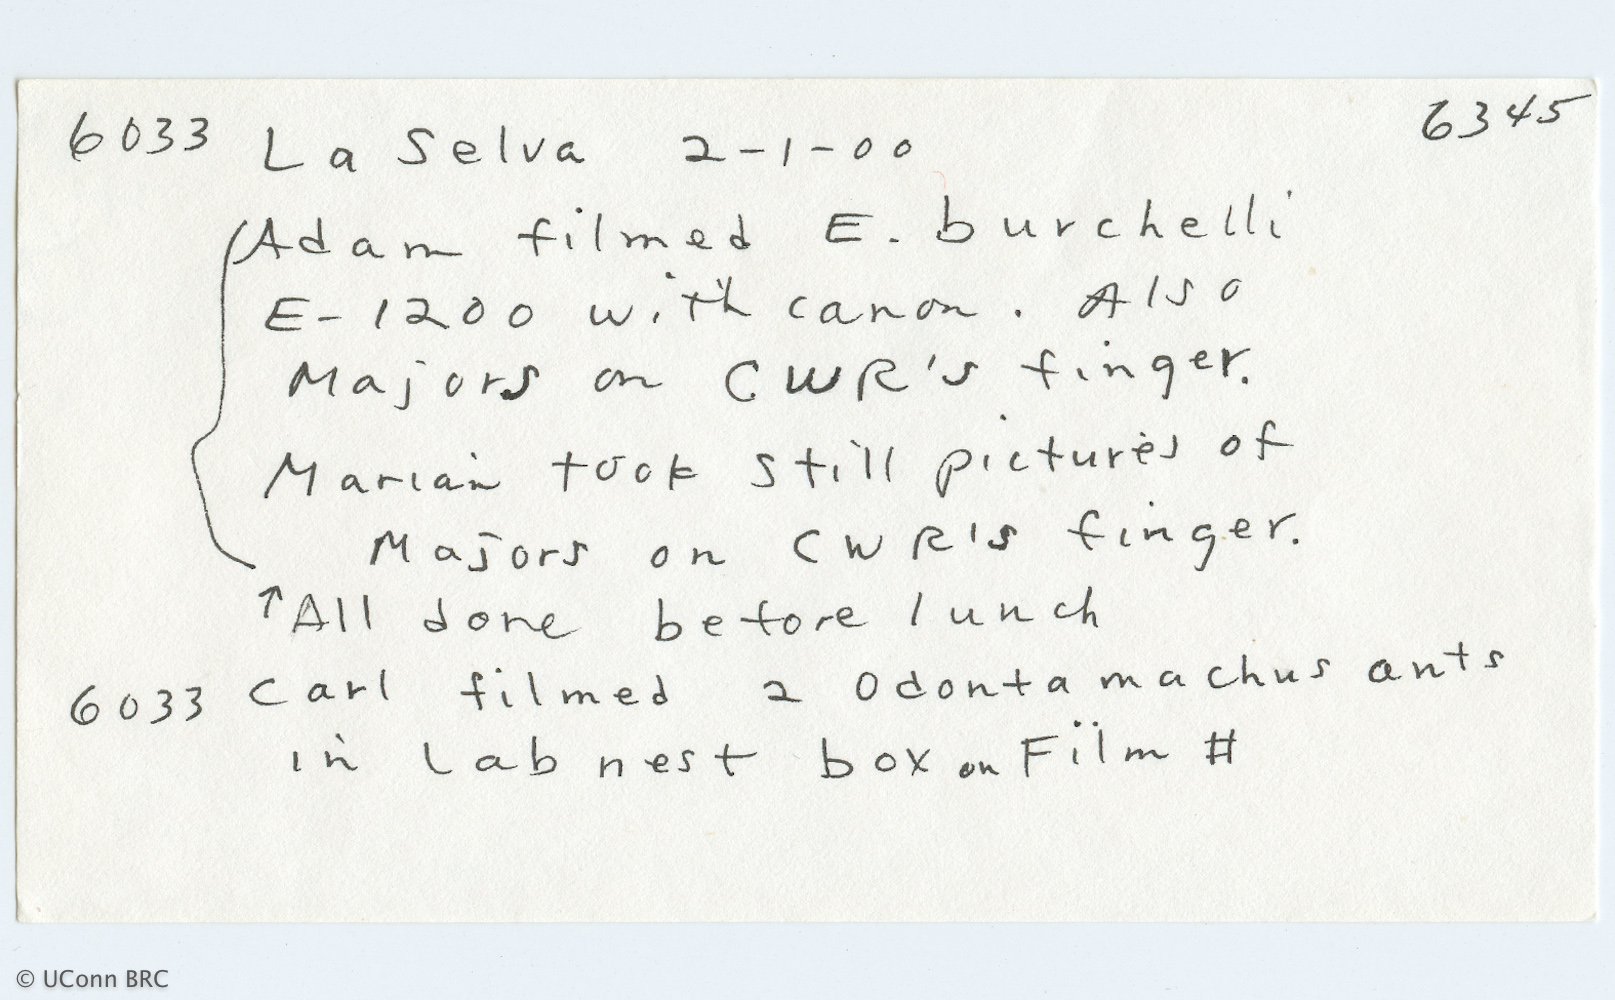 6033 La Selva 2-1-00 6345
Adam filmed E. burchelli
E-1200 with canon. Also
Majors on CWR's finger.
Marian took still pictures of
Majors on CWR's finger.
↑All done before lunch
6033 Carl filmed 2 Odontamachus ants
in Lab nest box on Film #
© UConn BRC